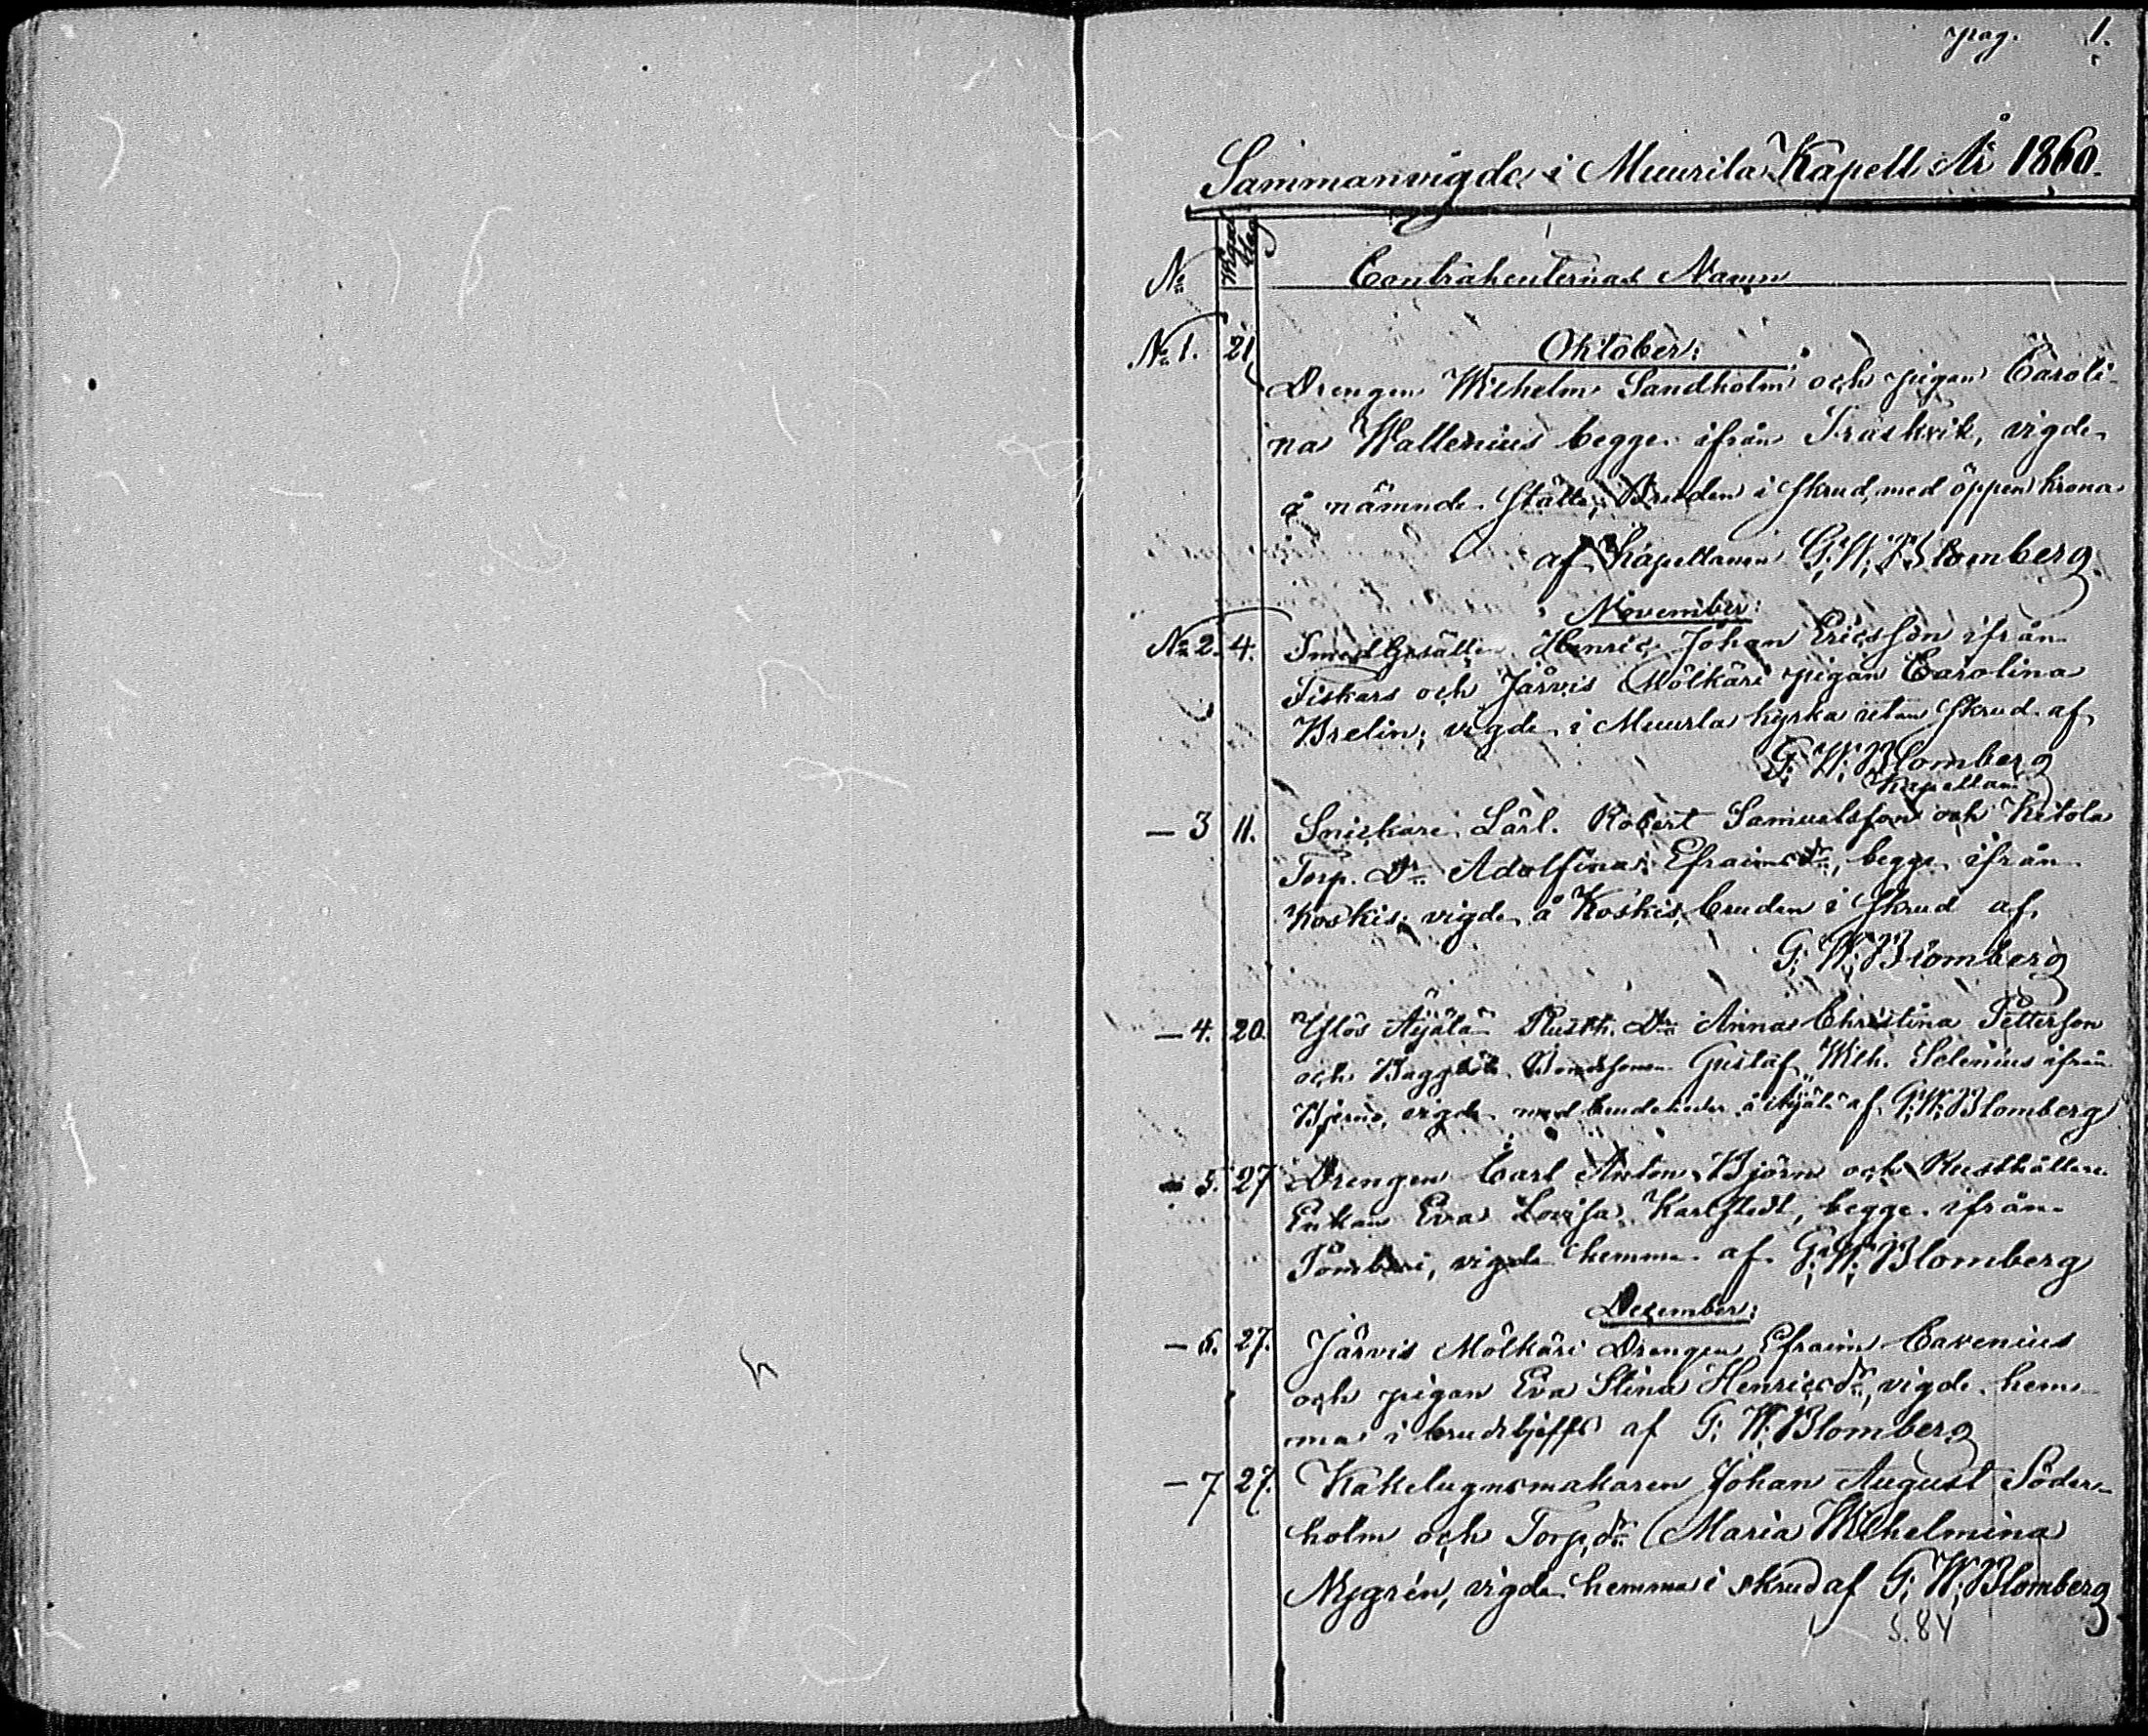 pag. 1.
Sammanvigde i Muurila Kapell År 1860.
No Vigsel dag Contrahenternas Namn
Oktober:
No 1. 21 Drengen Wilhelm Sandholm och pigan Caroli-
na Wallenius begge ifrån Träskvik, vigde
å nämnde ställe, Bruden i skrud med öppen krona
af Kapellanen G: W: Blomberg.
November:
No 2. 4. Smedgesällen Henric Johan Ericsson ifrån
Fiskars och Järvis Mölkäri pigan Carolina
Brelin, vigde i Muurla kyrka utan skrud af
G: W: Blomberg
Kapellan
— 3 11. Snickare Lärl. Robert Samuelsson och Ketola
Torp. Dr Adolfina Efraimsdr, begge ifrån
Koskis; vigde å Koskis, bruden i skrud af
G: W: Blomberg
— 4. 20. Yslös Äijälä Rusth. Dr Anna Christina Petterson
och Bondsonen Gustaf Wilh. Selenius ifrån
Bjerno, vigde med å Äijälä af G: W: Blomberg
— 5. 27 Drengen Carl Anton Björn och Rusthållare
Enkan Eva Lovisa Karlstedt, begge ifrån
vigde hemma af G: W: Blomberg
December:
— 6. 27. Järvis Mölkäri Drengen Efraim Cavenius
och pigan Eva Stina Henricsdr, vigde hem-
ma i af G: W: Blomberg
— 7 27. Kakelugnsmakaren Johan August Söder-
holm och Torp. dr Maria Wilhelmina
Nygrén, vigde hemma i skrud af G: W: Blomberg
S. 84